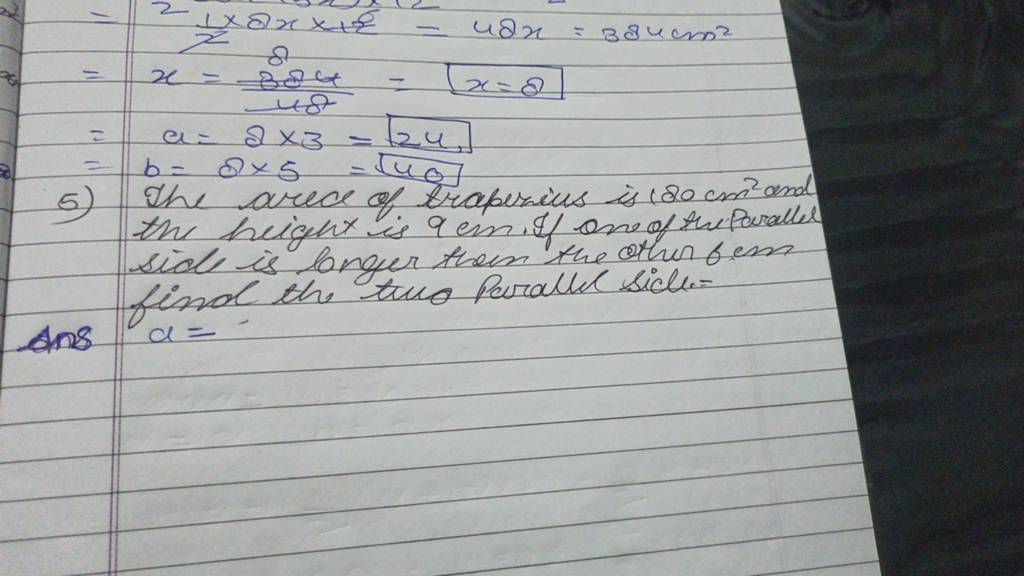 = 1/2 × 8x × 12 = 48x = 384cm²
= x = 384/48 8 = x=8
= a= 8×3 = 24
= b= 8×5 = 40
5) The area of traperius is 180 cm² and
the height is 9 cm. If one of the Parallel
side is longer them the other 6 cm
find the two Parallel side.=
Ans a=